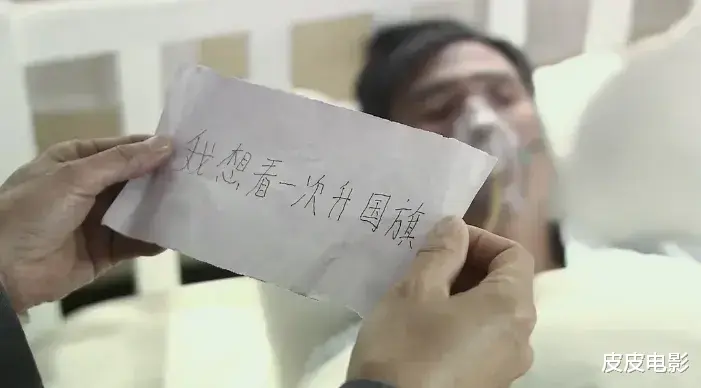 我想看一次升国旗
皮皮电影